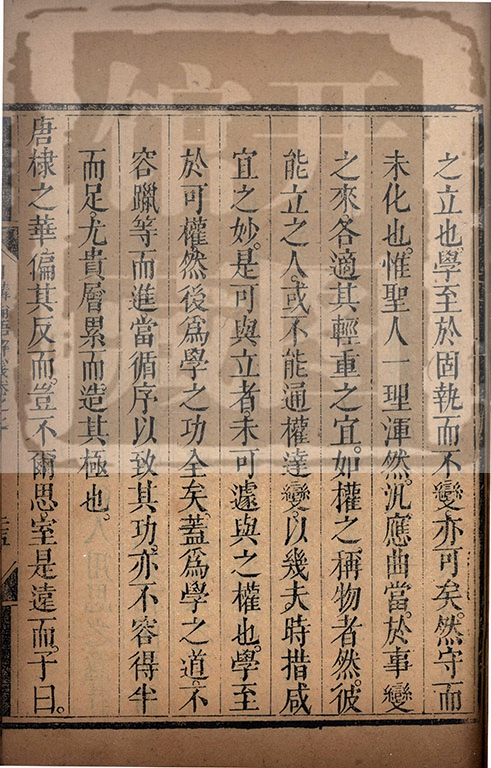 之立也。學至於固執而不變亦可矣。然守而
未化也。惟聖人一理渾然。汎應曲當。於事變
之來。各適其輕重之宜。如權之稱物者然。彼
能立之人。或不能通權達變。以幾夫時措咸
宜之妙。是可與立者。未可遽與之權也。學至
於可權。然後爲學之功全矣。蓋爲學之道。不
容躐等而進。當循序以致其功。亦不容得半
而足。尤貴層累而造其極也。
唐棣之華偏其反而。豈不爾思。室是遠而。子曰。